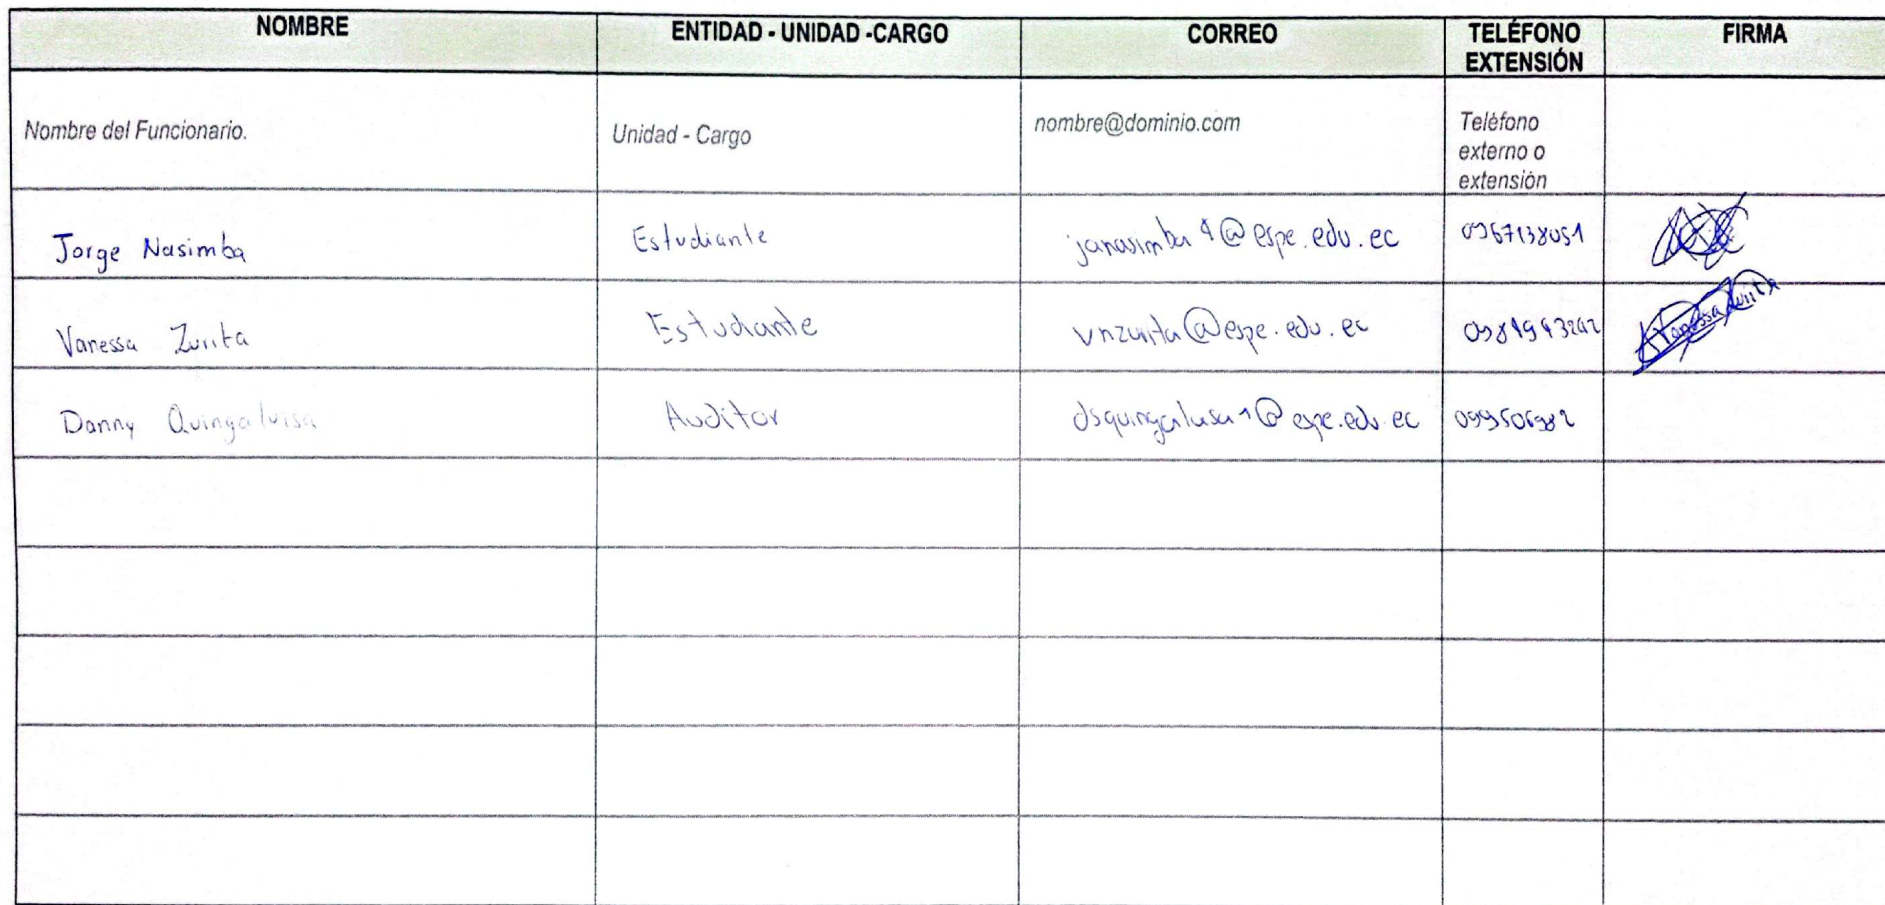 NOMBRE ENTIDAD - UNIDAD -CARGO CORREO TELÉFONO EXTENSIÓN FIRMA
Nombre del Funcionario. Unidad - Cargo nombre@dominio.com Teléfono externo o extensión
Jorge Nasimba Estudiante janasimba4@espe.edu.ec 0967138051
Vanessa Zurita Estudiante vnzurita@espe.edu.ec Vanessa Zurita
Danny Quingaluisa Auditor @espe.edu.ec